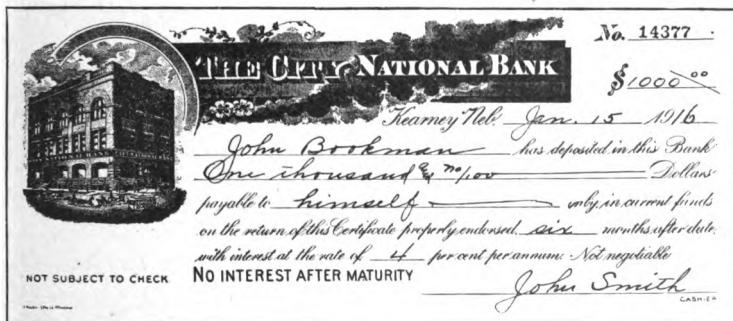 No. 14377
THE CITY NATIONAL BANK
$1000 00
Kearney Neb. Jan. 15 1916
John Bookman has deposited in this Bank
One thousand & no/100 Dollars
payable to himself only, in current funds
on the return of this Certificate properly endorsed six months after date,
with interest at the rate of 4 per cent per annum. Not negotiable
NOT SUBJECT TO CHECK
NO INTEREST AFTER MATURITY
John Smith
CASHIER